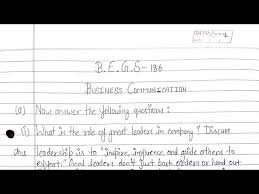 B.E.G.S-186
BUSINESS COMMUNICATION
(a) Now answer the following questions:
(i) What is the role of great leaders in company? Discuss
Ans leadership is to "inspire, influence and guide others to
Good leaders don't just bark orders or hand out